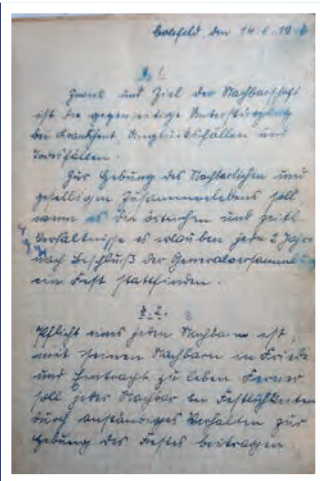 den 14.6.19
§ 1.
Zweck und Ziel der Nachbarschaft
ist die gegenseitige Unterstützung
bei Krankheit Unglücksfällen und
Todesfällen.
Zur Hebung des Nachbarlichen und
geselligen Zusammenlebens soll
wenn es die örtlichen und zeitl.
Verhältnisse es erlauben jede 2 Jahre
nach Beschluß der Generalversammlung
ein Fest stattfinden.
§ 2.
Pflicht eines jeden Nachbarn ist,
mit seinen Nachbarn in Friede
und Eintracht zu leben Ferner
soll jeder Nachbar bei Festlichkeiten
durch anständiges Verhalten zur
Hebung des Festes beitragen